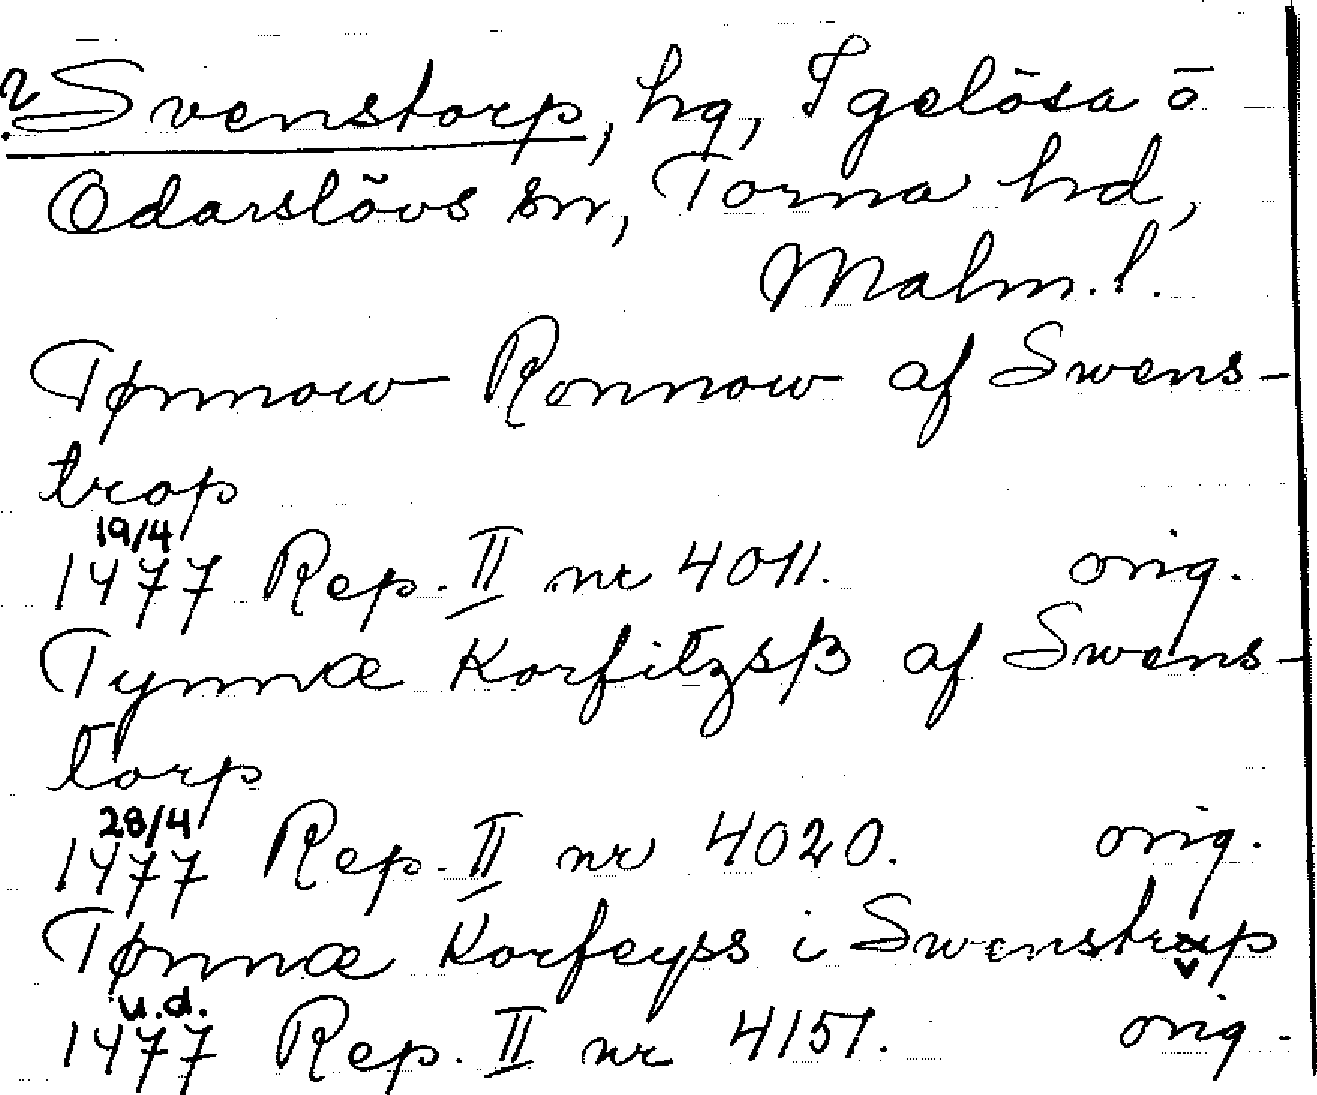 ? Svenstorp, hg, Igelösa o
Odarslövs sn, Torna hd,
Malm. l.
Tønnow Ronnow af Swens-
trop
19/4
1477 Rep. II nr 4011. orig.
Tynnæ Korfitzsß af Swens-
torp
28/4
1477 Rep. II nr 4020. orig.
Tønnæ Korfeyss i Swenstrup
u.d.
1477 Rep. II nr 4151. orig.